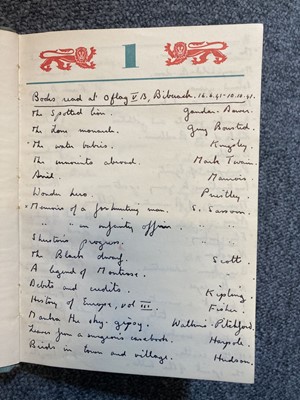 1
Books read at Oflag V B, Biberach. 16.6.41-10.10.41.
The Spotted lion. Gander-Dower.
The Lone monarch. Guy Boested.
The water babies. Kingsley.
The innocents abroad. Mark Twain.
Ariel. Maurois.
Wonder hero. Priestley.
Memoirs of a foxhunting man. S. Sassoon.
" " " infantry officer. " "
Sherston's progress. " "
The Black dwarf. Scott.
A legend of Montrose. "
Debits and credits. Kipling.
History of Europe, vol III Fisher.
Mantha the sky-gipsy. Watkins-Pitchford.
Leaves from a surgeon's casebook. Harpole.
Birds in town and village. Hudson.